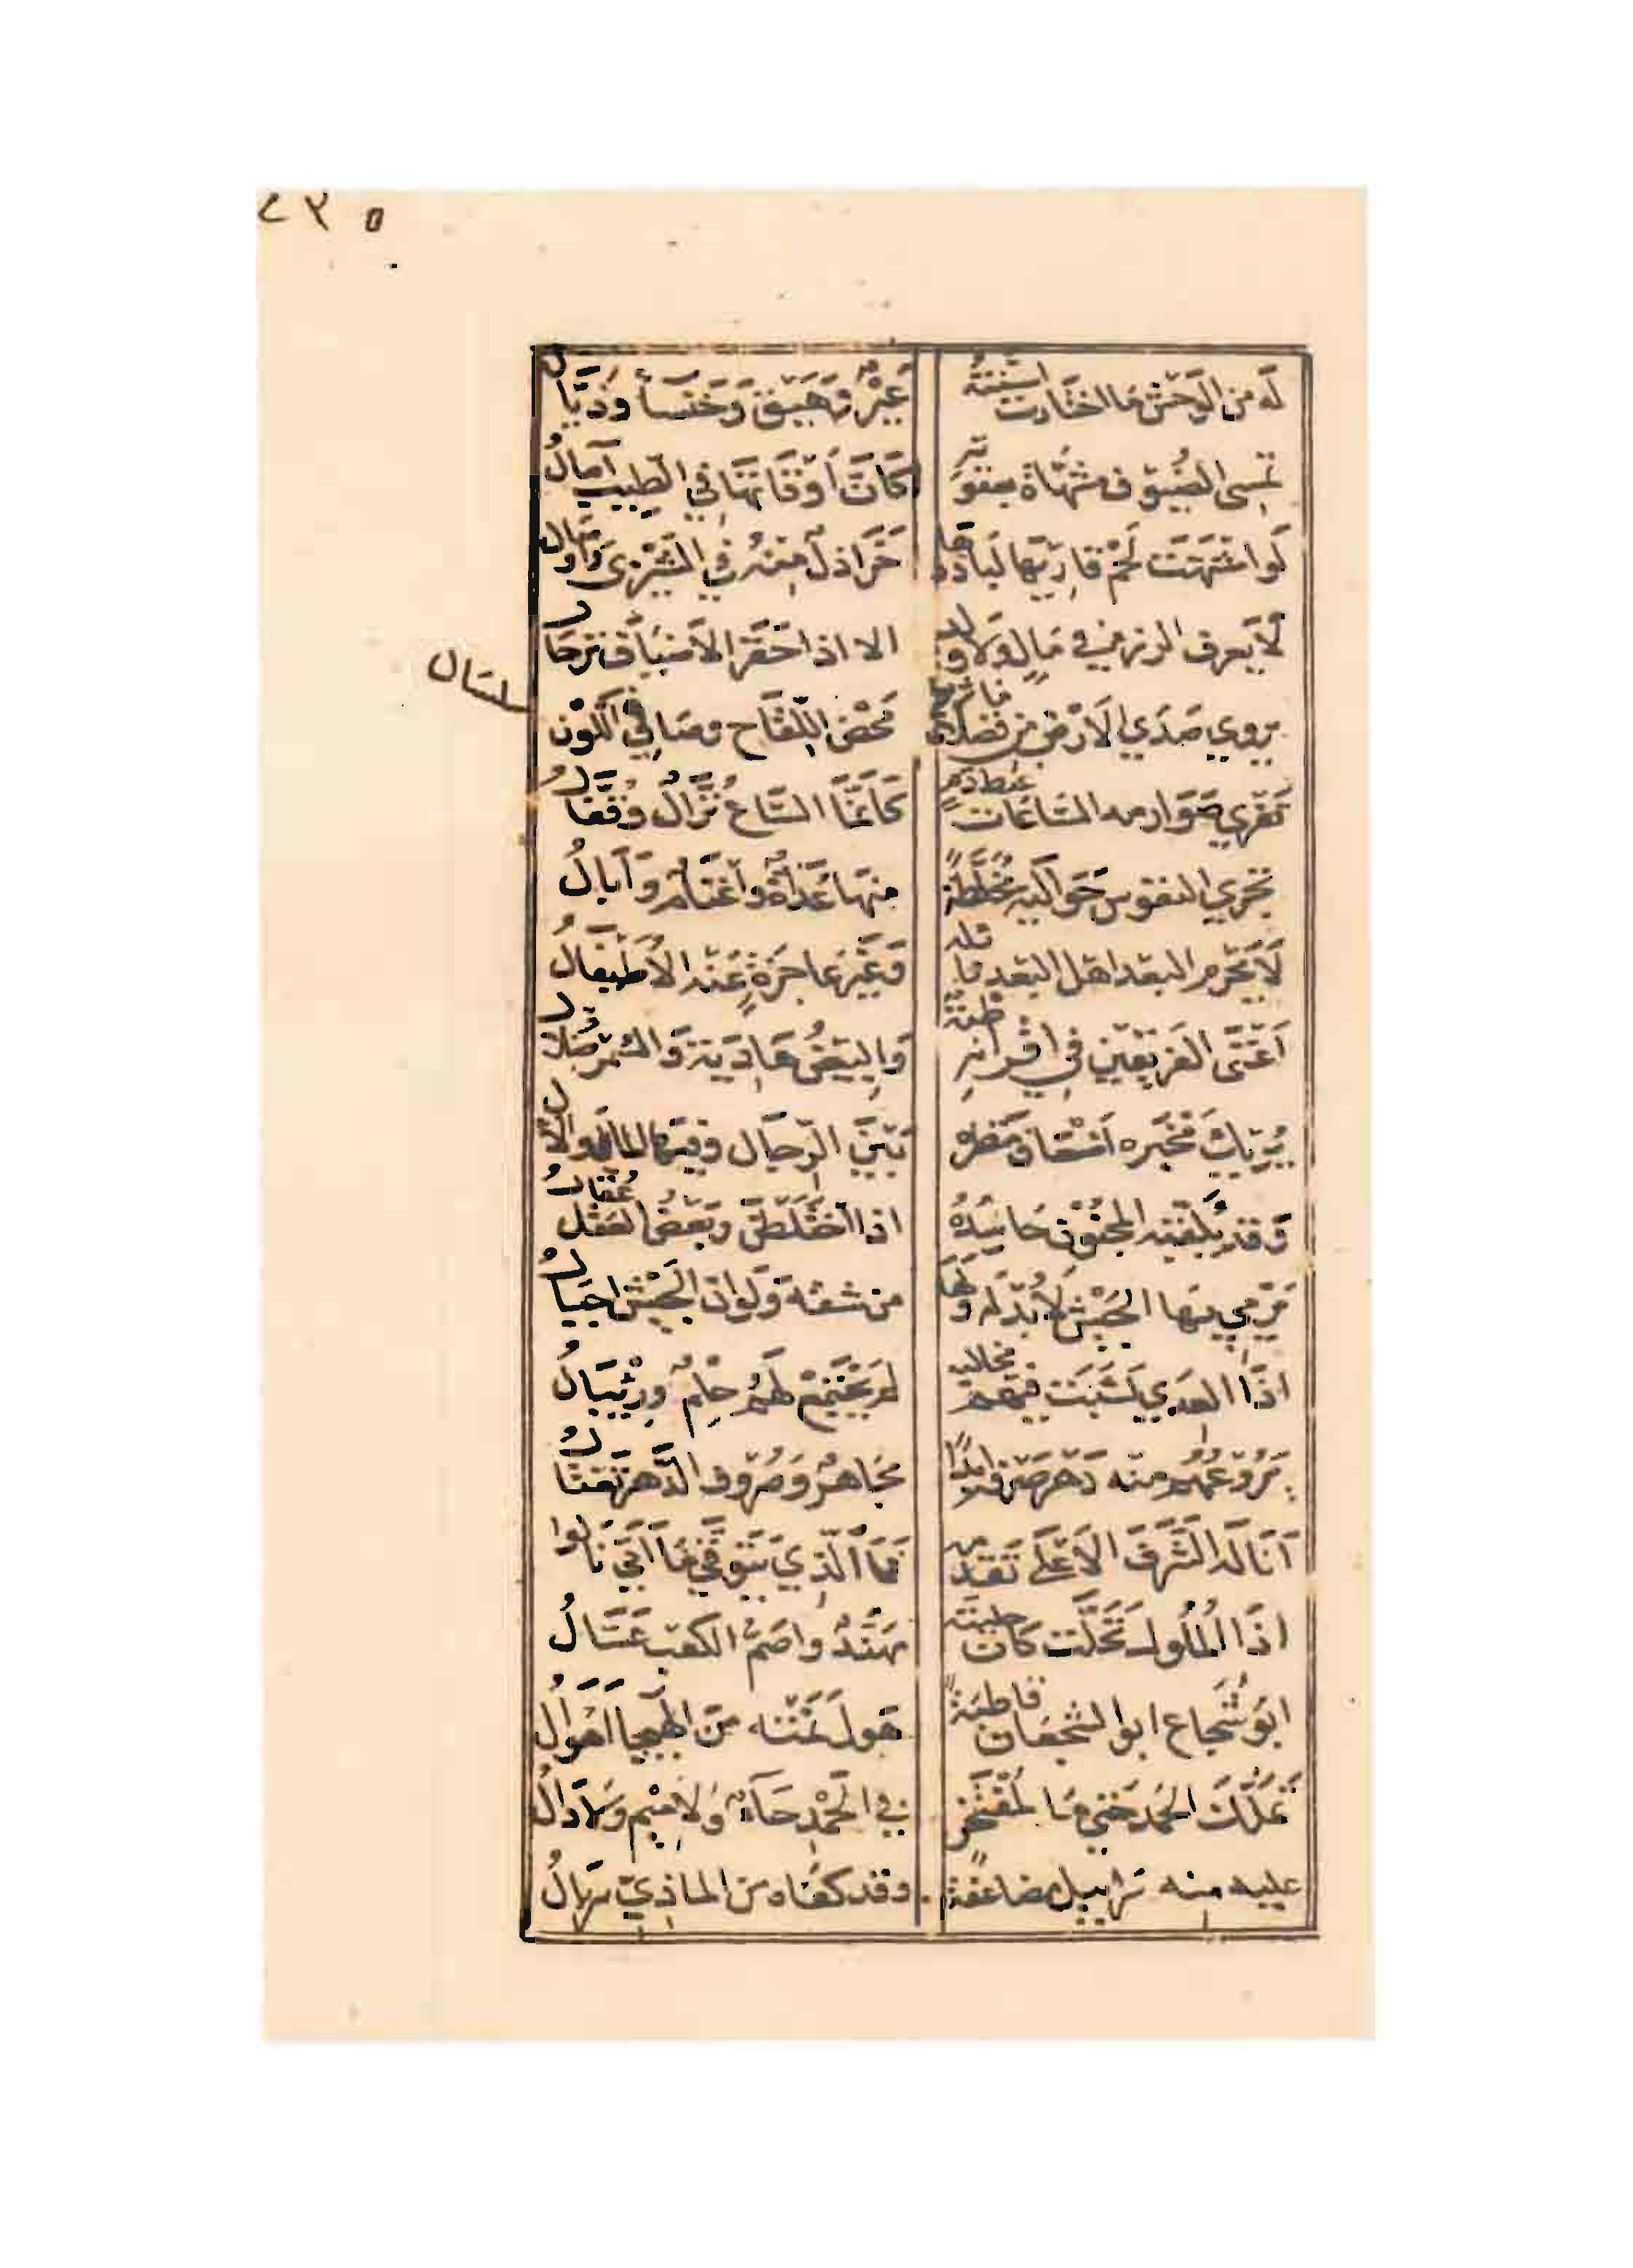 ٢٣٥
لَه من الوَحش مَا اختَارت اسنّتهُ عَيْرٌ وَهَيق وَخنسَاءٌ وَذيّالُ
تمسى الضُيوف مشهّاة بعقوته كَأَنَّ أَوْقَاتهَا في الطِيب آصالُ
لَو اشتهَتَ لَحْم قاريهَا لَبادَرها خَرَاذلٌ مِنهُ في الشّيزَى وَأوصَال
لَا يَعرف الرزء في مَالٍ وَلَا ولد الا اذا احَفَزَ الأضيَاف ترحَالُ
يروي صَدَي الأَرْض من فضلات مَا شربوا مَحْض اللقَاح وصَافي اللَّوْن
سلسَال
تَقري صَوَارمه السَاعَات عبط دمٍ كَأَنَّمَا السَّاعُ نُزَّالٌ وَقُفَّالُ
تجري النفوس حَوَاليه مخَلّطةً منهَا عُدَاةٌ وَأغنَامٌ وَآبَالُ
لَا يَحرم البعد اهل البعد نائله وَغَيْر عاجزَةٍ عَنْه الأُطَيفَالُ
اَمْضَى الفَريقَيْن في اقرانِهِ ظبةً وَالبِيضُ هَادِيَة وَالسُّمر ضلّالُ
يُريك مَخْبَره أضعاف مَنظره بَيْنَ الرِجَال وفيهَا الماء والآل
وَقد يُلَقّبه المجنُون حَاسِدُهُ اذا اختَلَطنَ وَبَعضُ العَقْل عُقّالُ
يَرْمي بهَا الجَيْش لَا بُدّ لَه وَلهَا من شقه وَلَو انّ الجَيْش اجبَالُ
اذَا العدى نَشبَت فيهم مخالبه لم يَجْتَمِعْ لَهُم حِلْمٌ وَرِئْبَالُ
يَرُوعهُم منه دَهْر صَرفه ابَدًا مجَاهرٌ وَصُرُوف الدَّهر تَغتَالُ
أَنَالَه الشَّرَفَ الأَعْلَى تَقَدّمه فَمَا الَّذِي بتَوَقّي مَا أَتَى نَالُوا
اذَا المُلُوك تَحَلَّت كَانَ حليته مهَنَّدٌ وَاصَمُّ الكعْب عَسَّالُ
ابُو شُجَاع ابو الشجعَان قاطبَةً هَول نَمَتْه مِنَ الهَيجا أهوَالُ
تَمَلّكَ الحَمْد حَتّى مَا لمُفتَخر في الحَمْدِ حَاءٌ وَلا مِيْم وَلا دَالُ
عليه منه سَرابيل مضاعفةً وقد كفَاه من الماذيّ سربالُ